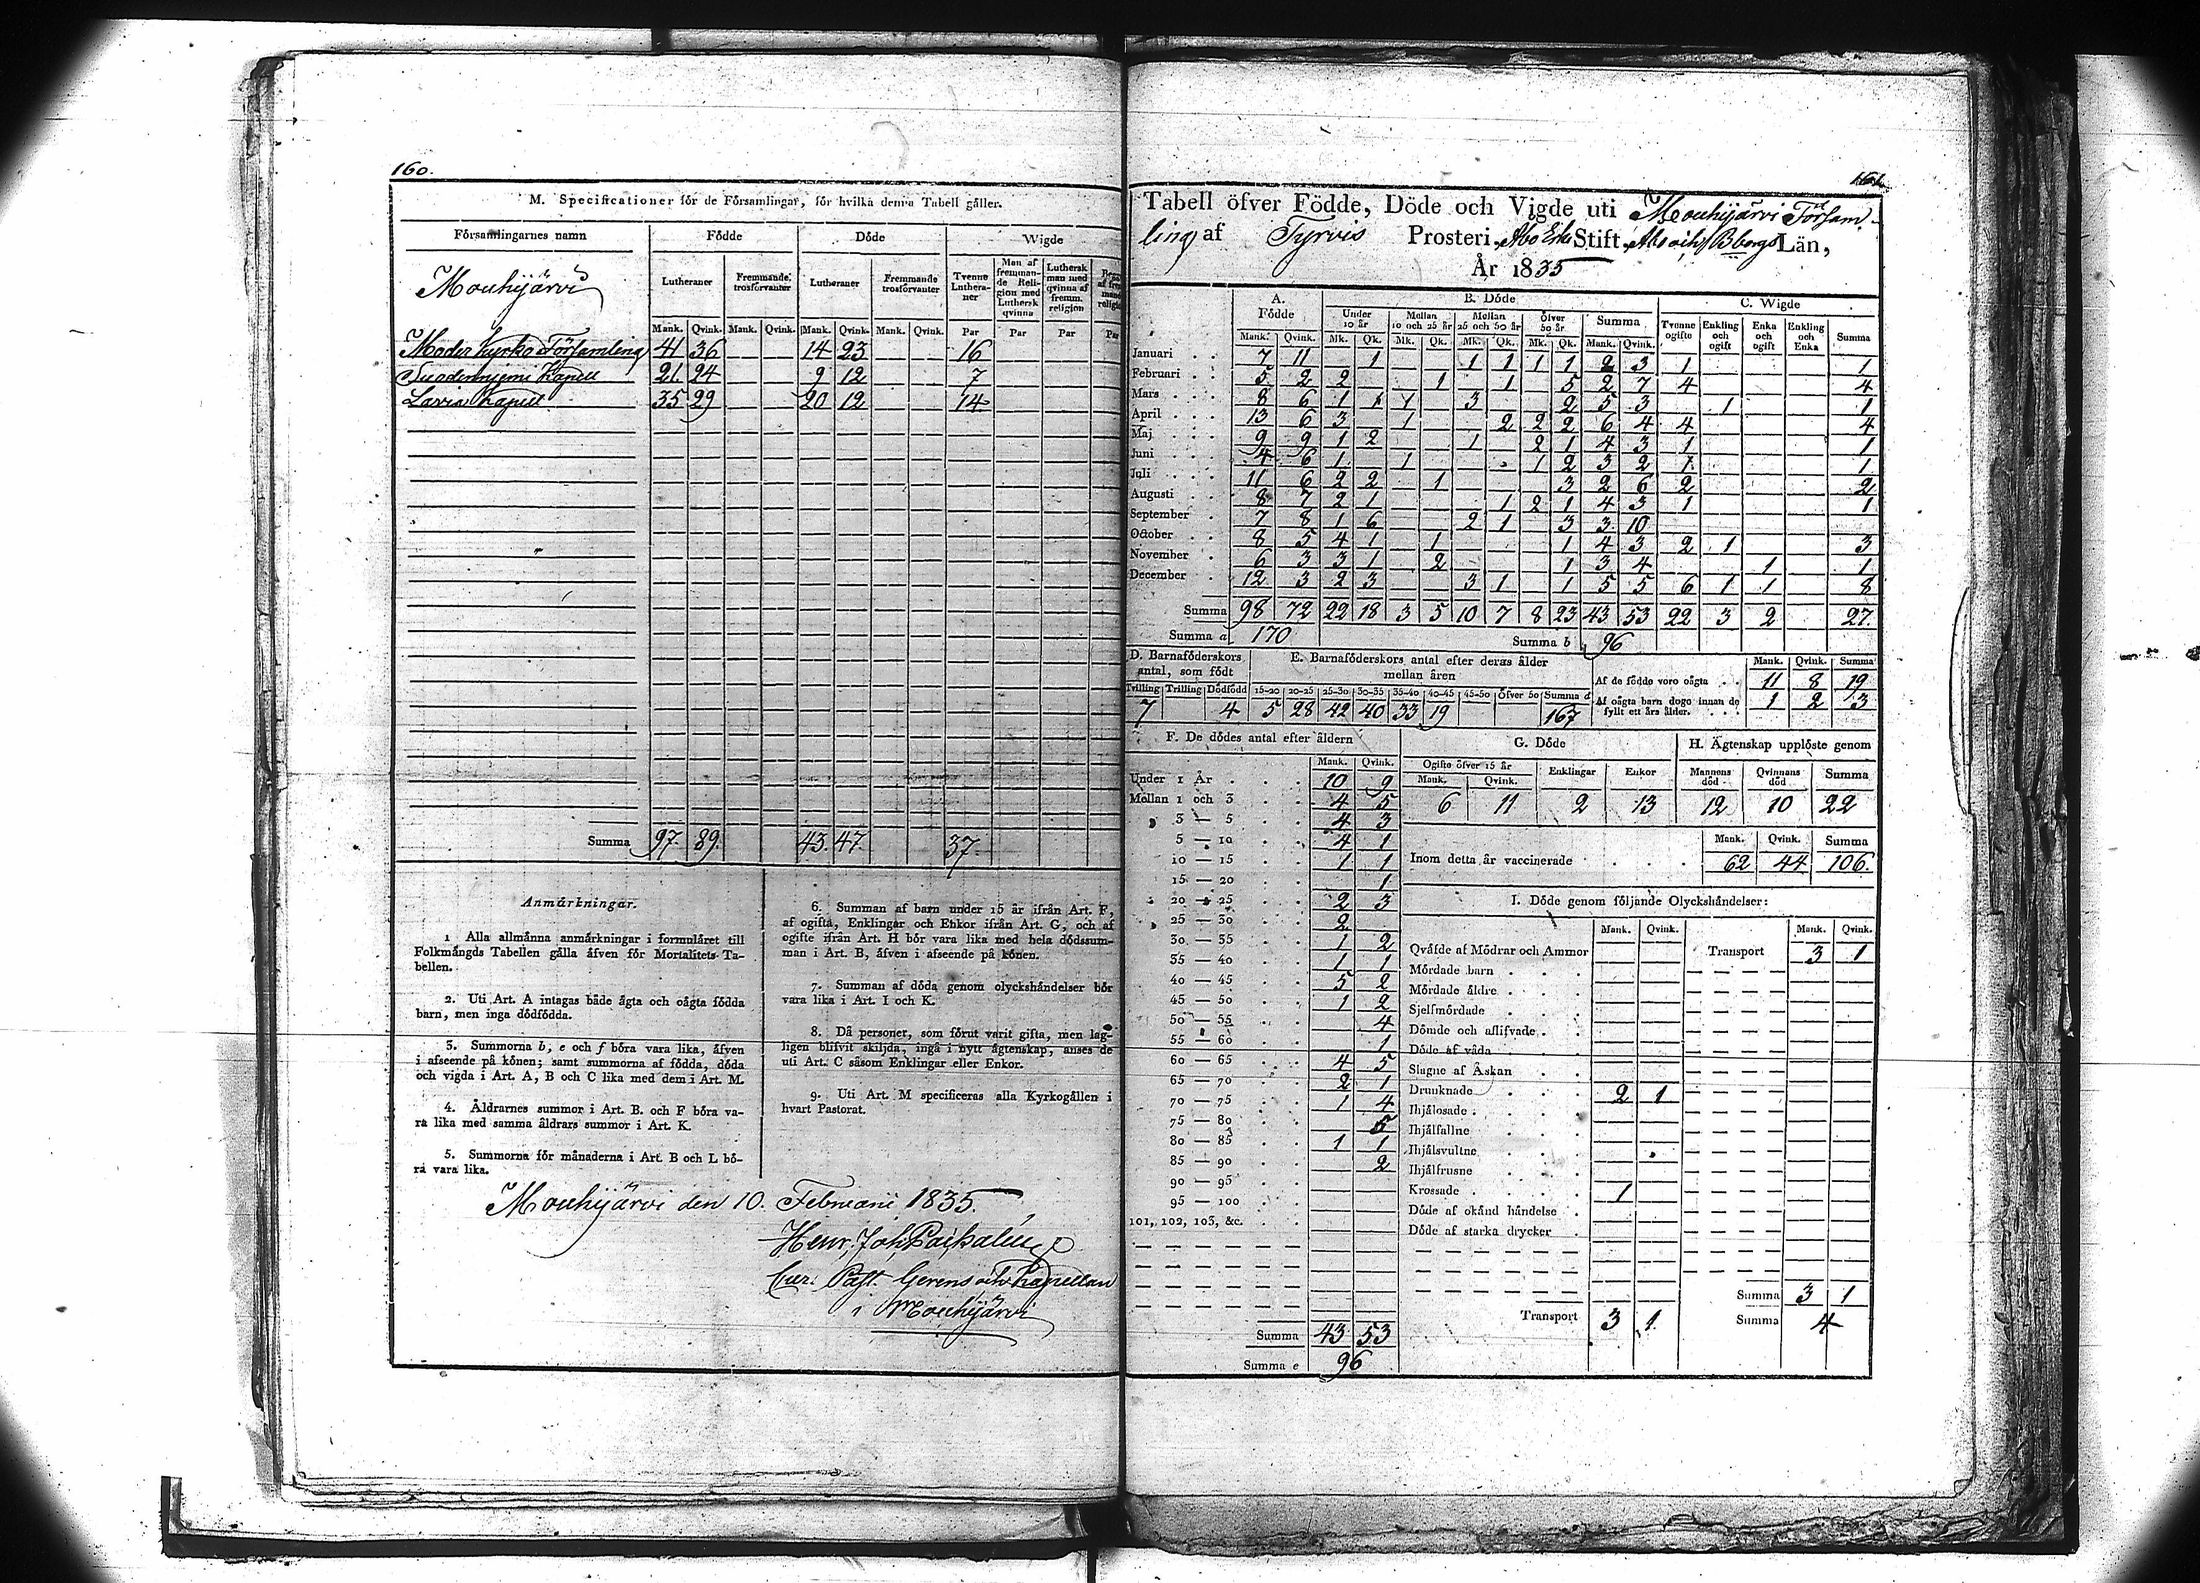 160.
M. Specificationer för de Församlingar, för hvilka denna Tabell gäller.
Församlingarnes namn | Födde | Döde | Wigde
Mouhijärvi | Lutheraner | Fremmande trosförvanter | Lutheraner | Fremmande trosförvanter | Tvenne Lutheraner | Man af fremmande Religion med Luthersk qvinna | Luthersk man med qvinna af fremm. religion
Mank. Qvink. Mank. Qvink. Mank. Qvink. Mank. Qvink. Par Par Par Par
Moder kyrko Församling 41 36 14 23 16
Suodenniemi Kapell 21 24 9 12 7
Lavia Kapell 35 29 20 12 14
Summa 97. 89. 43. 47. 37.
Anmärkningar.
1 Alla allmänna anmärkningar i formuläret till
Folkmängds Tabellen gälla äfven för Mortalitets-Ta-
bellen.
2. Uti Art. A intagas både ägta och oägta födda
barn, men inga dödfödda.
3. Summorna b, e och f böra vara lika, äfven
i afseende på könen; samt summorna af födda, döda
och vigda i Art. A, B och C lika med dem i Art. M.
4. Åldrarnes summor i Art. B. och F böra va-
ra lika med samma åldrars summor i Art. K.
5. Summorna för månaderna i Art. B och L bö-
ra vara lika.
6. Summan af barn under 15 år ifrån Art. F,
af ogifta, Enklingar och Enkor ifrån Art. G, och af
ogifte ifrån Art. H bör vara lika med hela dödssum-
man i Art. B, äfven i afseende på könen.
7. Summan af döda genom olyckshändelser bör
vara lika i Art. I och K.
8. Då personer, som förut varit gifta, men lag-
ligen blifvit skiljda, ingå i nytt ägtenskap, anses de
uti Art. C såsom Enklingar eller Enkor.
9. Uti Art. M specificeras alla Kyrkogällen i
hvart Pastorat.
Mouhijärvi den 10. Februarii 1835.
Henr. Joh.
Past. Gerens och Kapellan
i Mouhijärvi
161.
Tabell öfver Födde, Döde och Vigde uti Mouhijärvi Försam-
ling af Tyrvis Prosteri, Åbo Erke Stift, Åbo och Bborgs Län,
År 1835
A. Födde | B. Döde | C. Wigde
Under 10 år | Mellan 10 och 25 år | Mellan 25 och 50 år | Öfver 50 år | Summa | Tvenne ogifte | Enkling och ogift | Enka och ogift | Enkling och Enka | Summa
Mank. Qvink. Mk. Qk. Mk. Qk. Mk. Qk. Mk. Qk. Mank. Qvink.
Januari 7 11 1 1 1 1 1 2 3 1 1
Februari 5 2 2 1 1 5 2 7 4 4
Mars 8 6 1 1 1 3 2 5 3 1 1
April 13 6 3 1 2 2 2 6 4 4 4
Maj 9 9 1 2 1 2 1 4 3 1 1
Juni 4 6 1 1 1 2 3 2 1 1
Juli 11 6 2 2 1 3 2 6 2 2
Augusti 8 7 2 1 1 2 1 4 3 1 1
September 7 8 1 6 2 1 3 3 10
October 8 5 4 1 1 1 4 3 2 1 3
November 6 3 3 1 2 1 3 4 1 1
December 12 3 2 3 3 1 1 5 5 6 1 1 8
Summa 98 72 22 18 3 5 10 7 8 23 43 53 22 3 2 27.
Summa a 170 Summa b 96
D. Barnaföderskors antal, som födt
Tvilling Trilling Dödfödd
7 4
E. Barnaföderskors antal efter deras ålder mellan åren
15-20 20-25 25-30 30-35 35-40 40-45 45-50 Öfver 50 Summa d
5 28 42 40 33 19 167
Mank. Qvink. Summa
Af de födde voro oägta 11 8 19
Af oägta barn dogo innan de fyllt ett års ålder. 1 2 3
F. De dödes antal efter åldern
Mank. Qvink.
Under 1 År 10 9
Mellan 1 och 3 4 5
3 — 5 4 3
5 — 10 4 1
10 — 15 1 1
15 — 20 1
20 — 25 2 3
25 — 30 2
30 — 35 1 2
35 — 40 1 1
40 — 45 5 2
45 — 50 1 2
50 — 55 4
55 — 60 1
60 — 65 4 5
65 — 70 2 1
70 — 75 1 4
75 — 80 5
80 — 85 1 1
85 — 90 2
90 — 95
95 — 100
101, 102, 103, &c.
Summa 43 53
Summa e 96
G. Döde
Ogifte öfver 15 år Enklingar Enkor
Mank. Qvink.
6 11 2 13
H. Ägtenskap upplöste genom
Mannens död Qvinnans död Summa
12 10 22
Mank. Qvink. Summa
Inom detta år vaccinerade 62 44 106.
I. Döde genom följande Olyckshändelser:
Mank. Qvink. Mank. Qvink.
Qväfde af Mödrar och Ammor Transport 3 1
Mördade barn
Mördade äldre
Sjelfmördade
Dömde och aflifvade
Döde af våda
Slagne af Åskan
Drunknade 2 1
Ihjälosade
Ihjälfallne
Ihjälsvultne
Ihjälfrusne
Krossade 1
Döde af okänd händelse
Döde af starka drycker
Summa 3 1
Transport 3 1 Summa 4